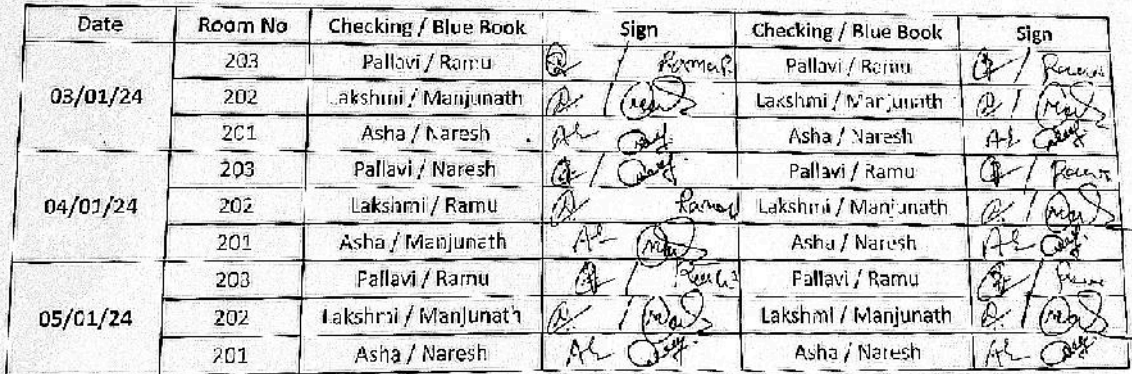 Date Room No Checking / Blue Book Sign Checking / Blue Book Sign
03/01/24
203 Pallavi / Ramu Pallavi / Ramu
202 Lakshmi / Manjunath Lakshmi / Manjunath
201 Asha / Naresh Asha / Naresh
04/01/24
203 Pallavi / Naresh Pallavi / Ramu
202 Lakshmi / Ramu Lakshmi / Manjunath
201 Asha / Manjunath Asha / Naresh
05/01/24
203 Pallavi / Ramu Pallavi / Ramu
202 Lakshmi / Manjunath Lakshmi / Manjunath
201 Asha / Naresh Asha / Naresh